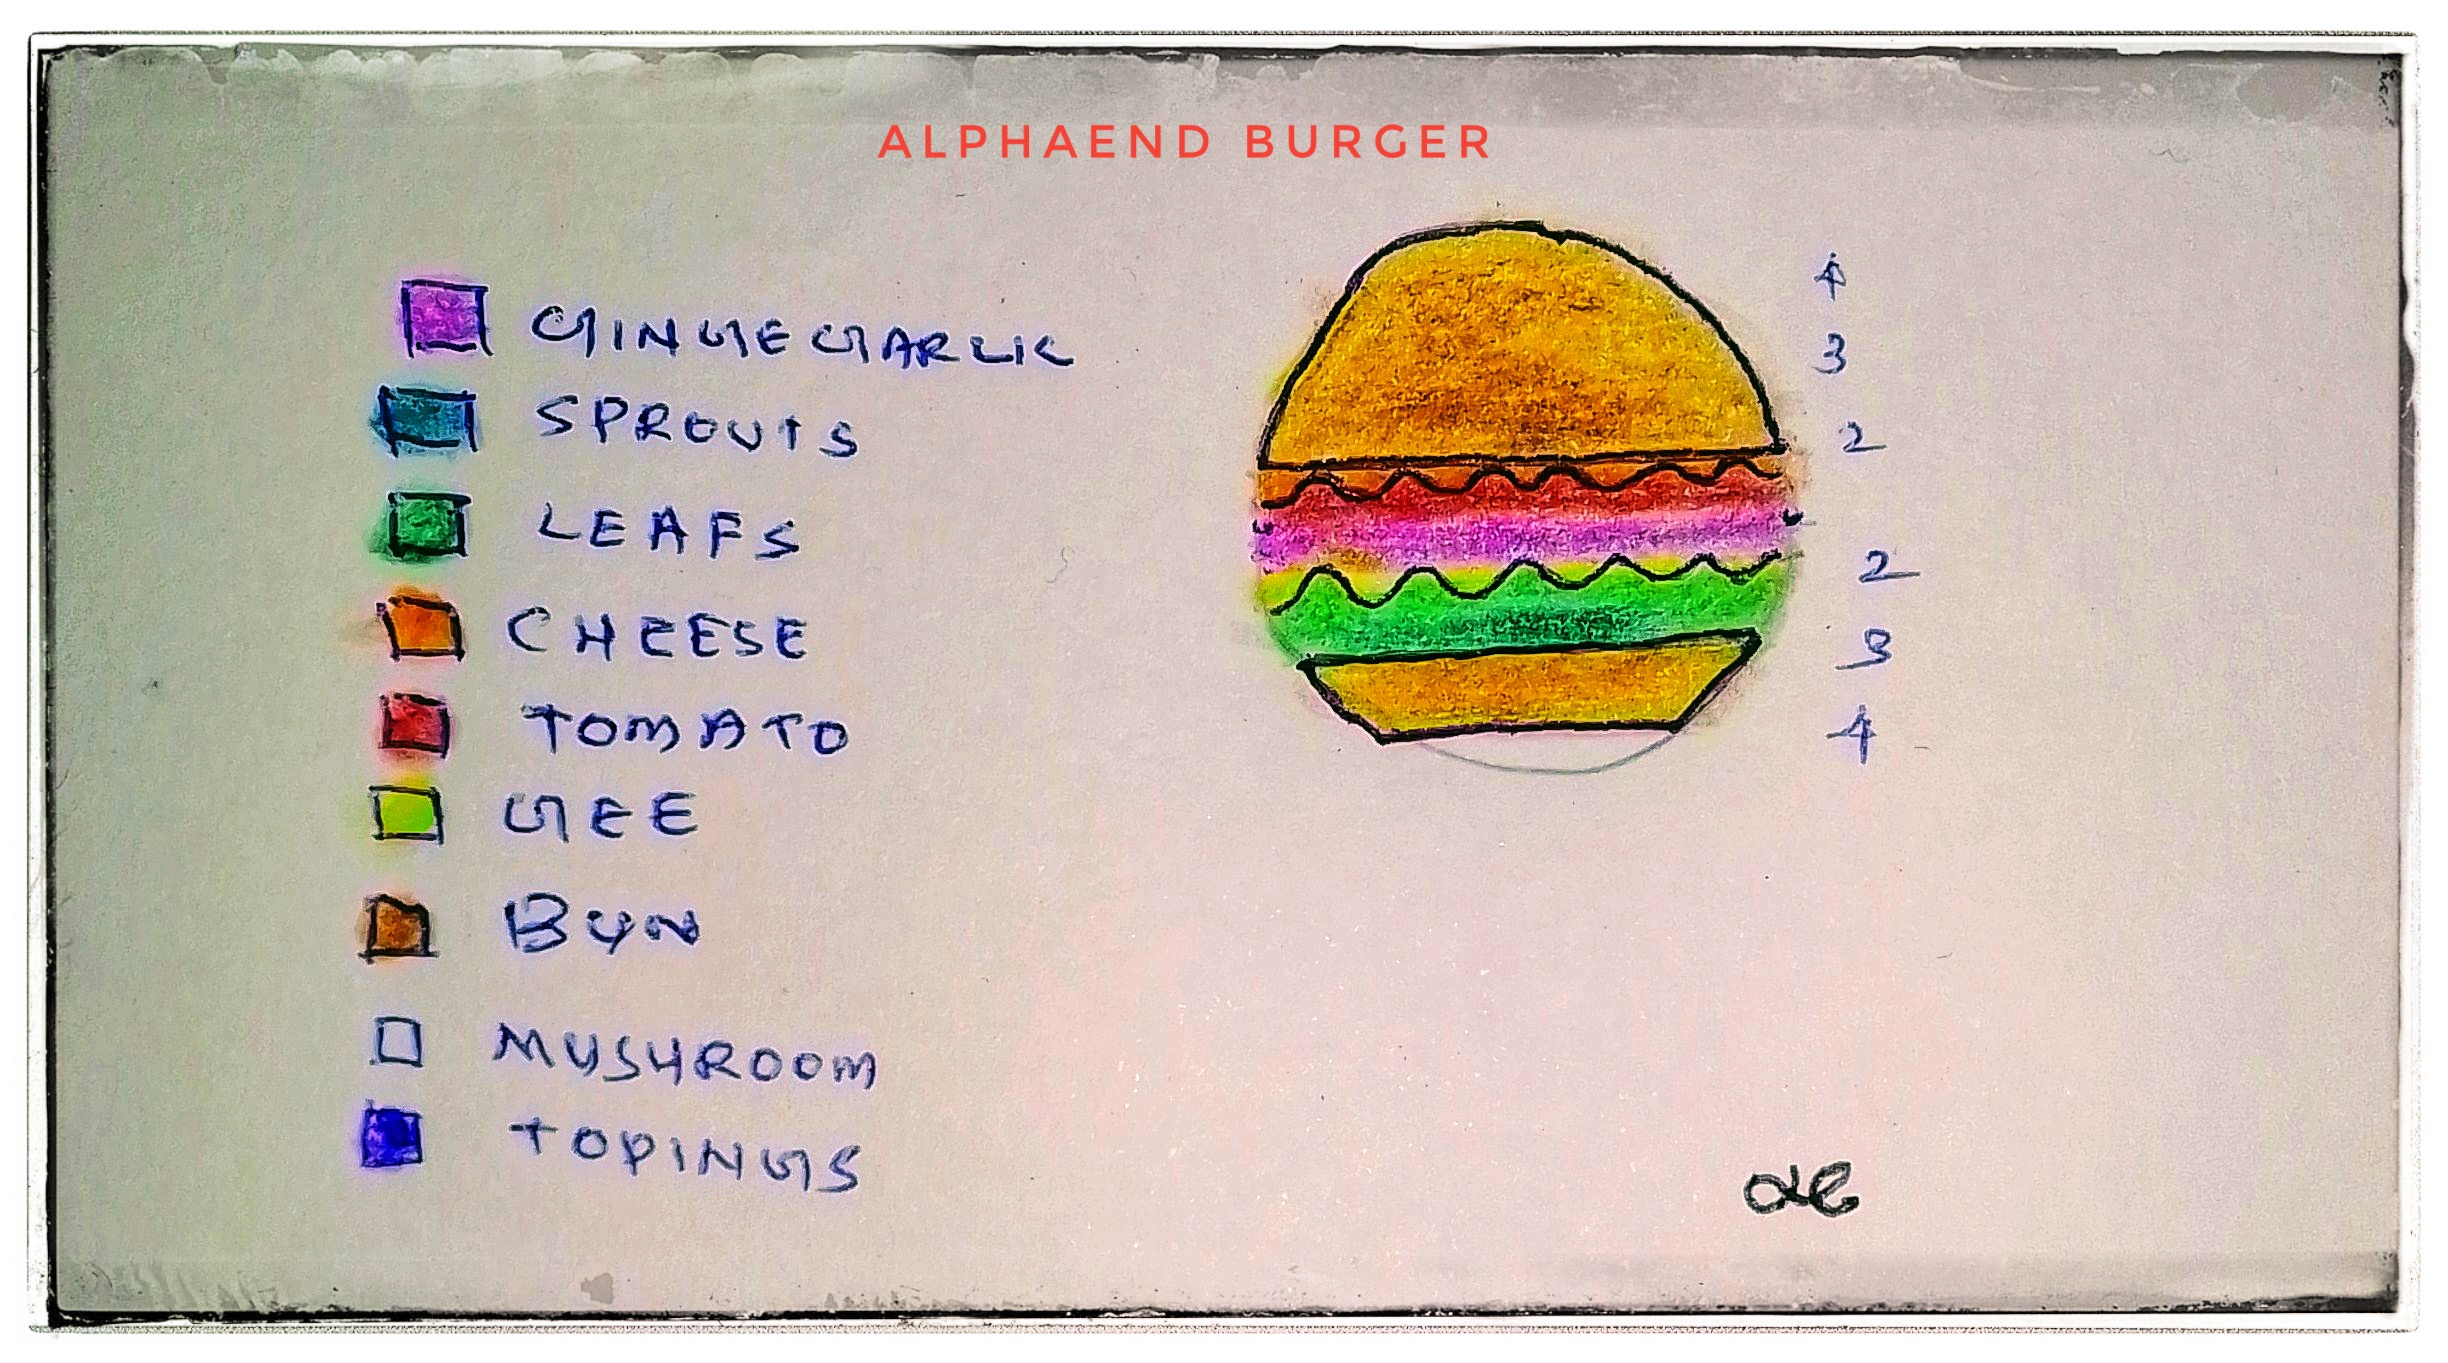 ALPHAEND BURGER
GINGEGARLIC
SPROUTS
LEAFS
CHEESE
TOMATO
GEE
BUN
MUSHROOM
TOPINGS
4
3
2
2
3
4
αe